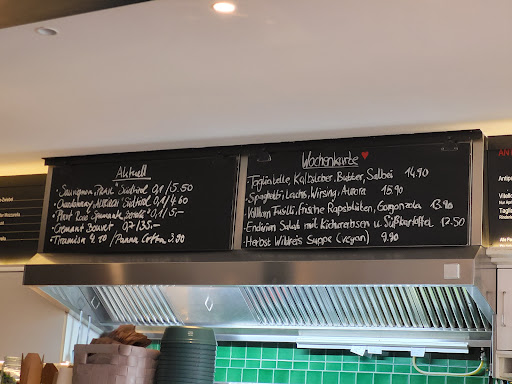 Aktuell
· Sauvignon "Praesulis" Südtirol 0,1/5.50
· Chardonnay Südtirol 0,1/4.60
· Pinot Rosé Spumante 0,1/5,-
· Cremant Bouvet 0,7/35,-
· Tiramisu 4.10 / Panna Cotta 3.90
Wochenkarte
· Tagliatelle, Kalbsleber, Butter, Salbei 14.90
· Spaghetti, Lachs, Wirsing, Aurora 15.90
· Vollkorn Fusilli, frische Rapsblüten, Gorgonzola 13.90
· Endivien Salat mit Kichererbsen u. Süßkartoffel 12.50
· Herbst Wildreis Suppe (vegan) 9.90
AN
Antip
Vitello
Tagli